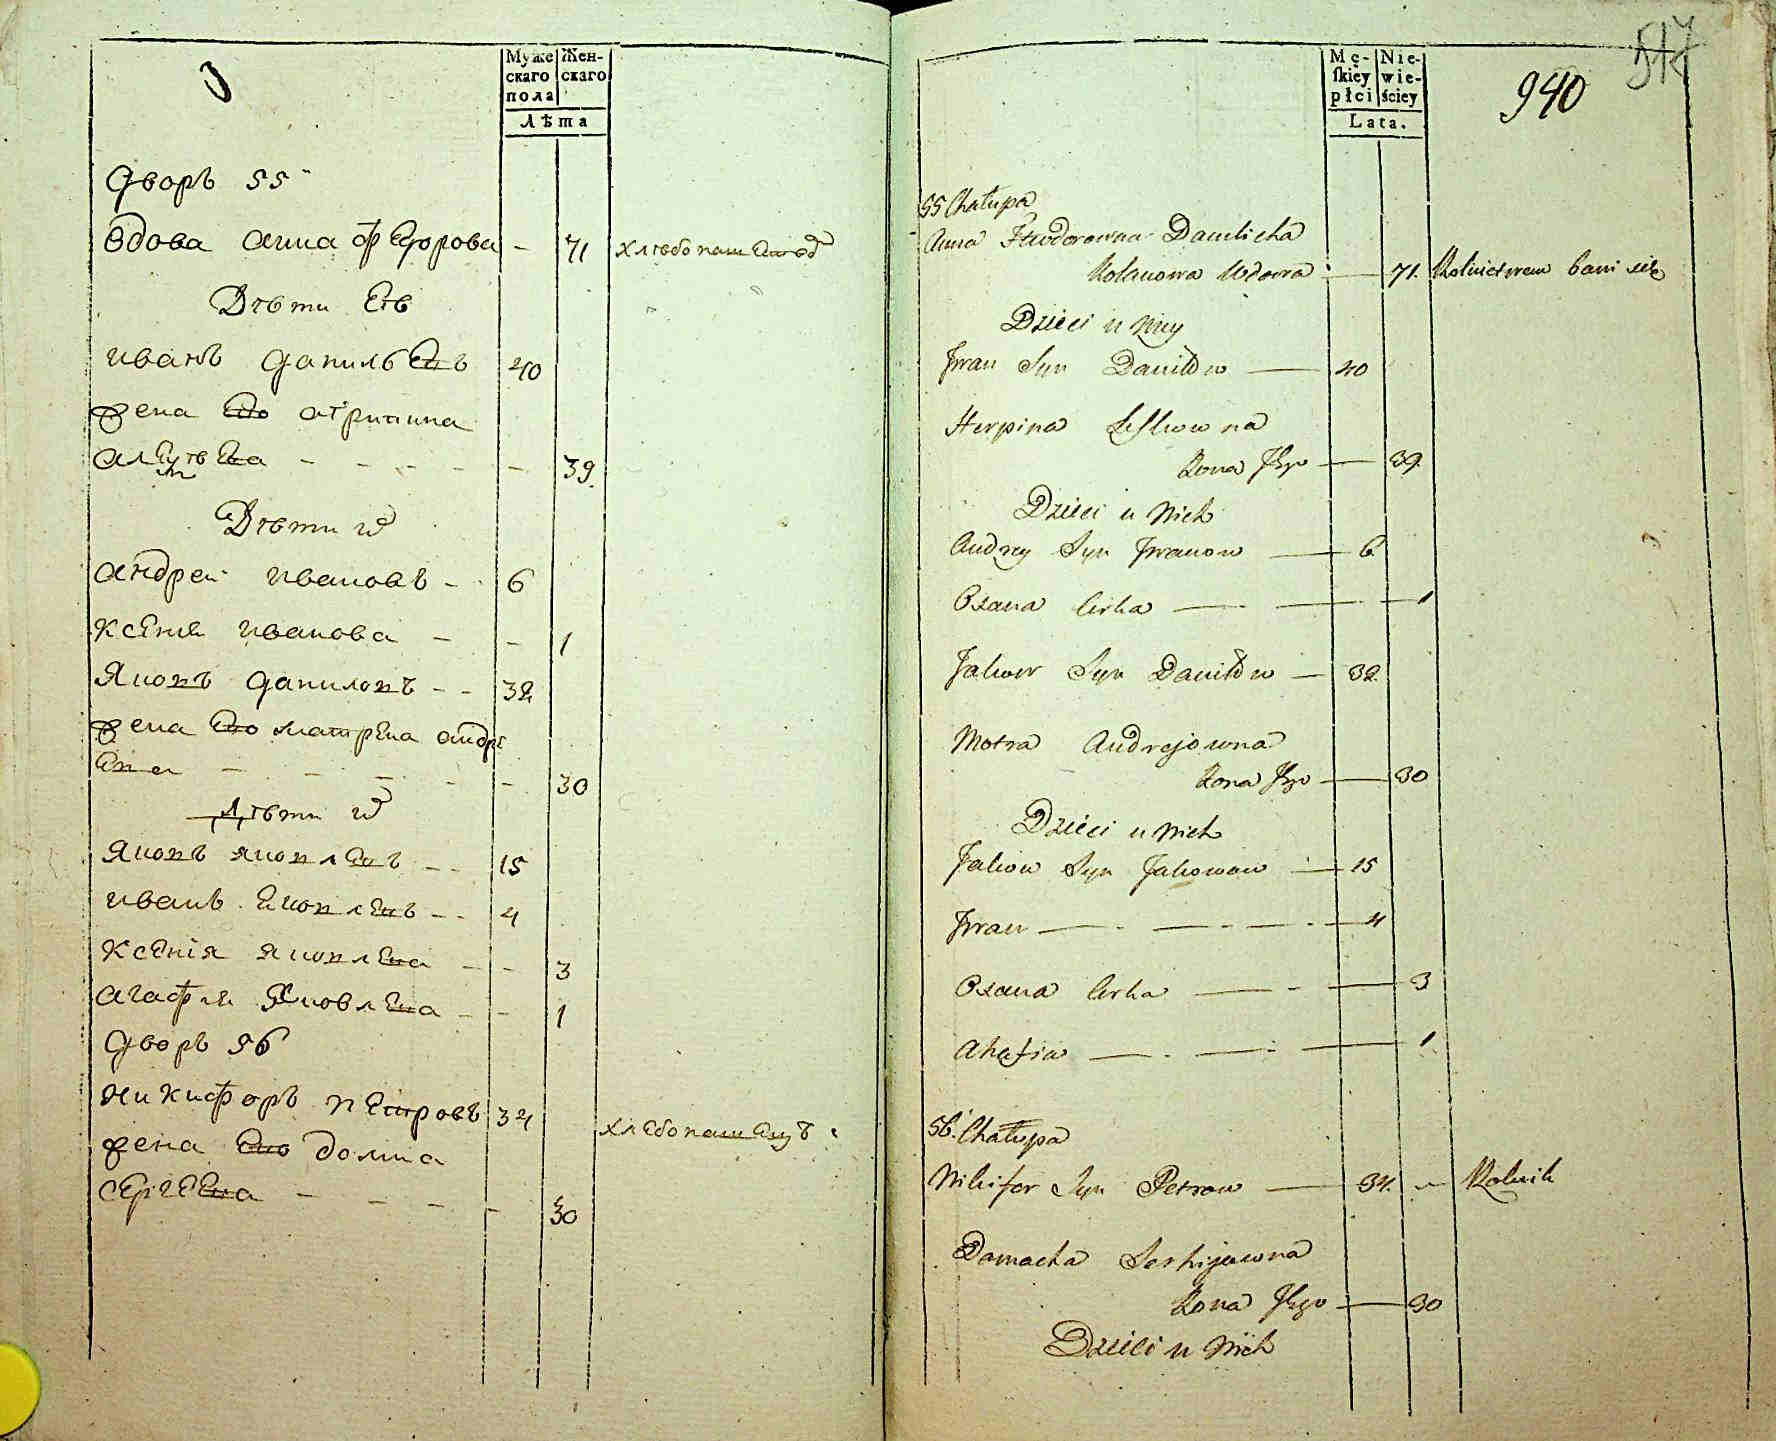 Муже Жен-
скаго скаго
пола
Лѣта
дворъ 55
вдова анна федорова - 71 хлебопашецъ
Дѣти Ее
иванъ данильевъ 40
жена Ево агрипина
алексѣева - - - - - 39
Дѣти ихъ
андреи ивановъ - 6
ксения иванова - - 1
Яковъ даниловъ - - 32
жена Ево матрена андре
ева - - - - - - 30
Дѣти ихъ
Яковъ яковлевъ - - 15
иванъ яковлевъ - - 4
ксенія яковлева - - 3
агафия яковлева - - 1
дворъ 56
никифоръ петровъ 34 хлебопашецъ
жена Ево домна
сергеева - - - - 30
Mę- Nie-
skiey wie-
płci ściey
Lata.
940
517
55 Chałupa
Anna Fiedorowna Danilicha
Wdowa — 71. Rolnictwem bawi się
Dzieci u Niey
Jwan Syn Daniłow — 40
Herpina
Zona Jego — 39.
Dzieci u Nich
Andrey Syn Jwanow — 6
Oxana Corka — — — 1
Jakow Syn Daniłow — 32
Motra Andrejowna
Zona Jego — 30
Dzieci u Nich
Jakow Syn Jakowow — 15
Jwan — - — - — - — 4
Oxana Corka — - — 3
Ahafia — - — - — 1
56. Chałupa
Nikifor Syn Petrow — 34. - Rolnik
Domacha Serhijowna
Zona Jego — 30
Dzieci u Nich